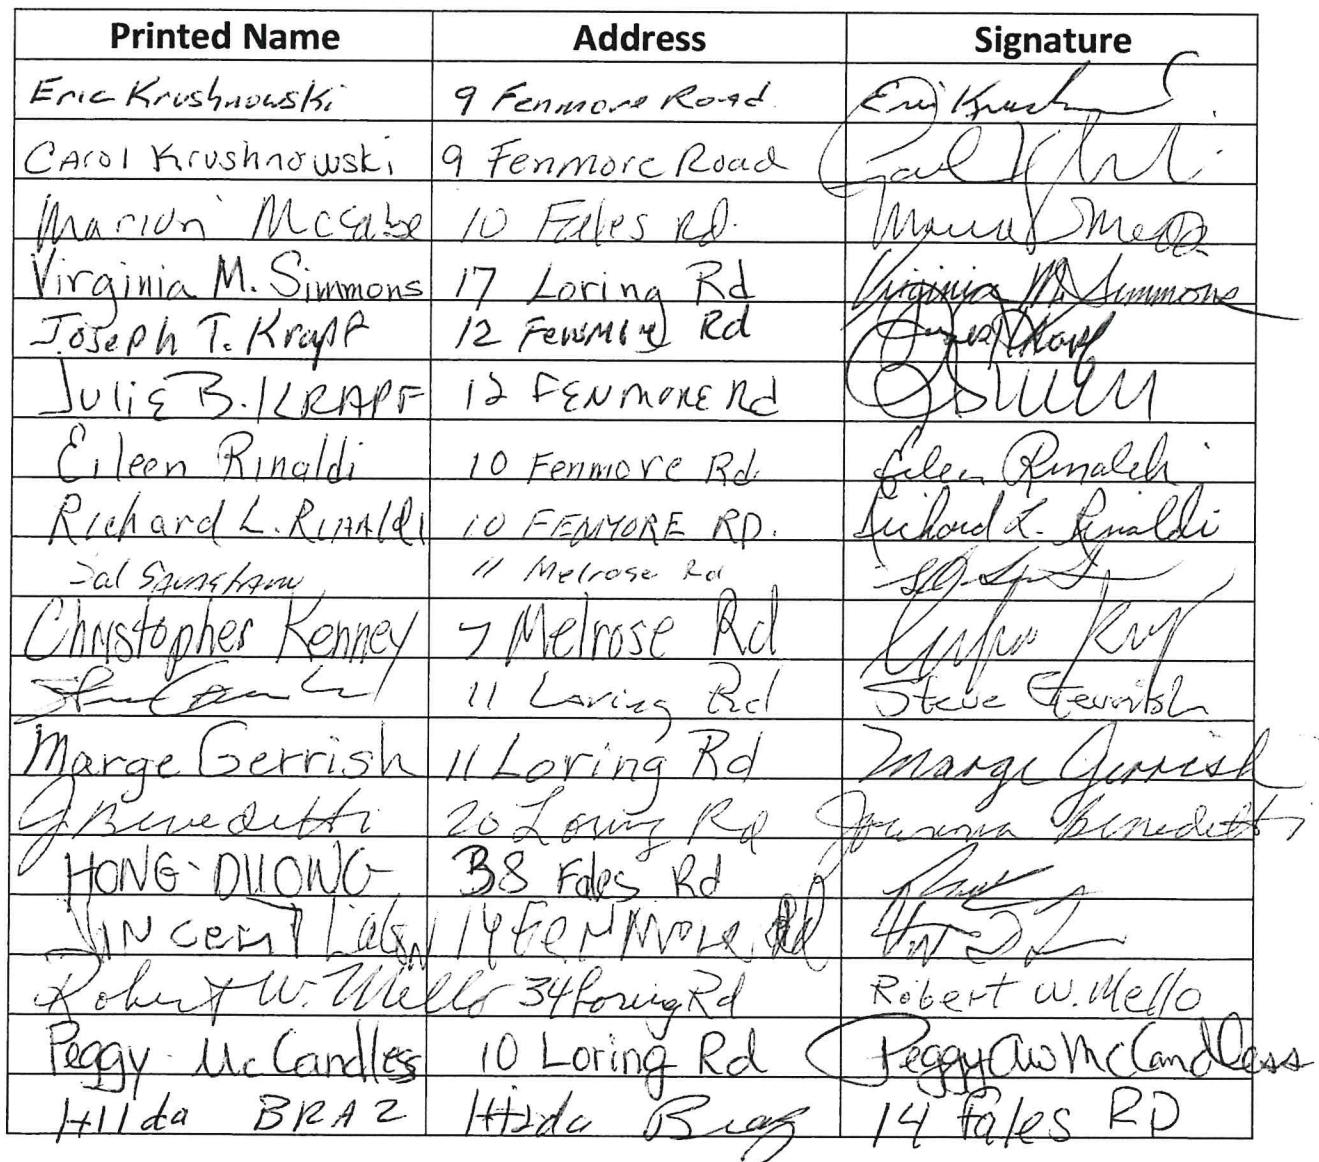 Printed Name Address Signature
Eric Krushnowski 9 Fenmore Road Eric Krush
Carol Krushnowski 9 Fenmore Road Carol
Marion McCabe 10 Fales Rd.
Virginia M. Simmons 17 Loring Rd Virginia M. Simmons
Joseph T. Krapf 12 Fenmore Rd
Julie B. KRAPF 12 FENMORE Rd
Eileen Rinaldi 10 Fenmore Rd. Eileen Rinaldi
Richard L. Rinaldi 10 FENMORE RD. Richard L. Rinaldi
Sal 11 Melrose Rd
Christopher Kenney 7 Melrose Rd
11 Loring Rd Steve Gerrish
Marge Gerrish 11 Loring Rd Marge Gerrish
J Benedetti 20 Loring Rd Joanna Benedetti
HONG DUONG 38 Fales Rd
Vincent 14 FENMORE Rd
Robert W. Mello 34 Loring Rd Robert W. Mello
Peggy McCandless 10 Loring Rd Peggy Ann McCandless
Hilda BRAZ Hilda Braz 14 Fales RD